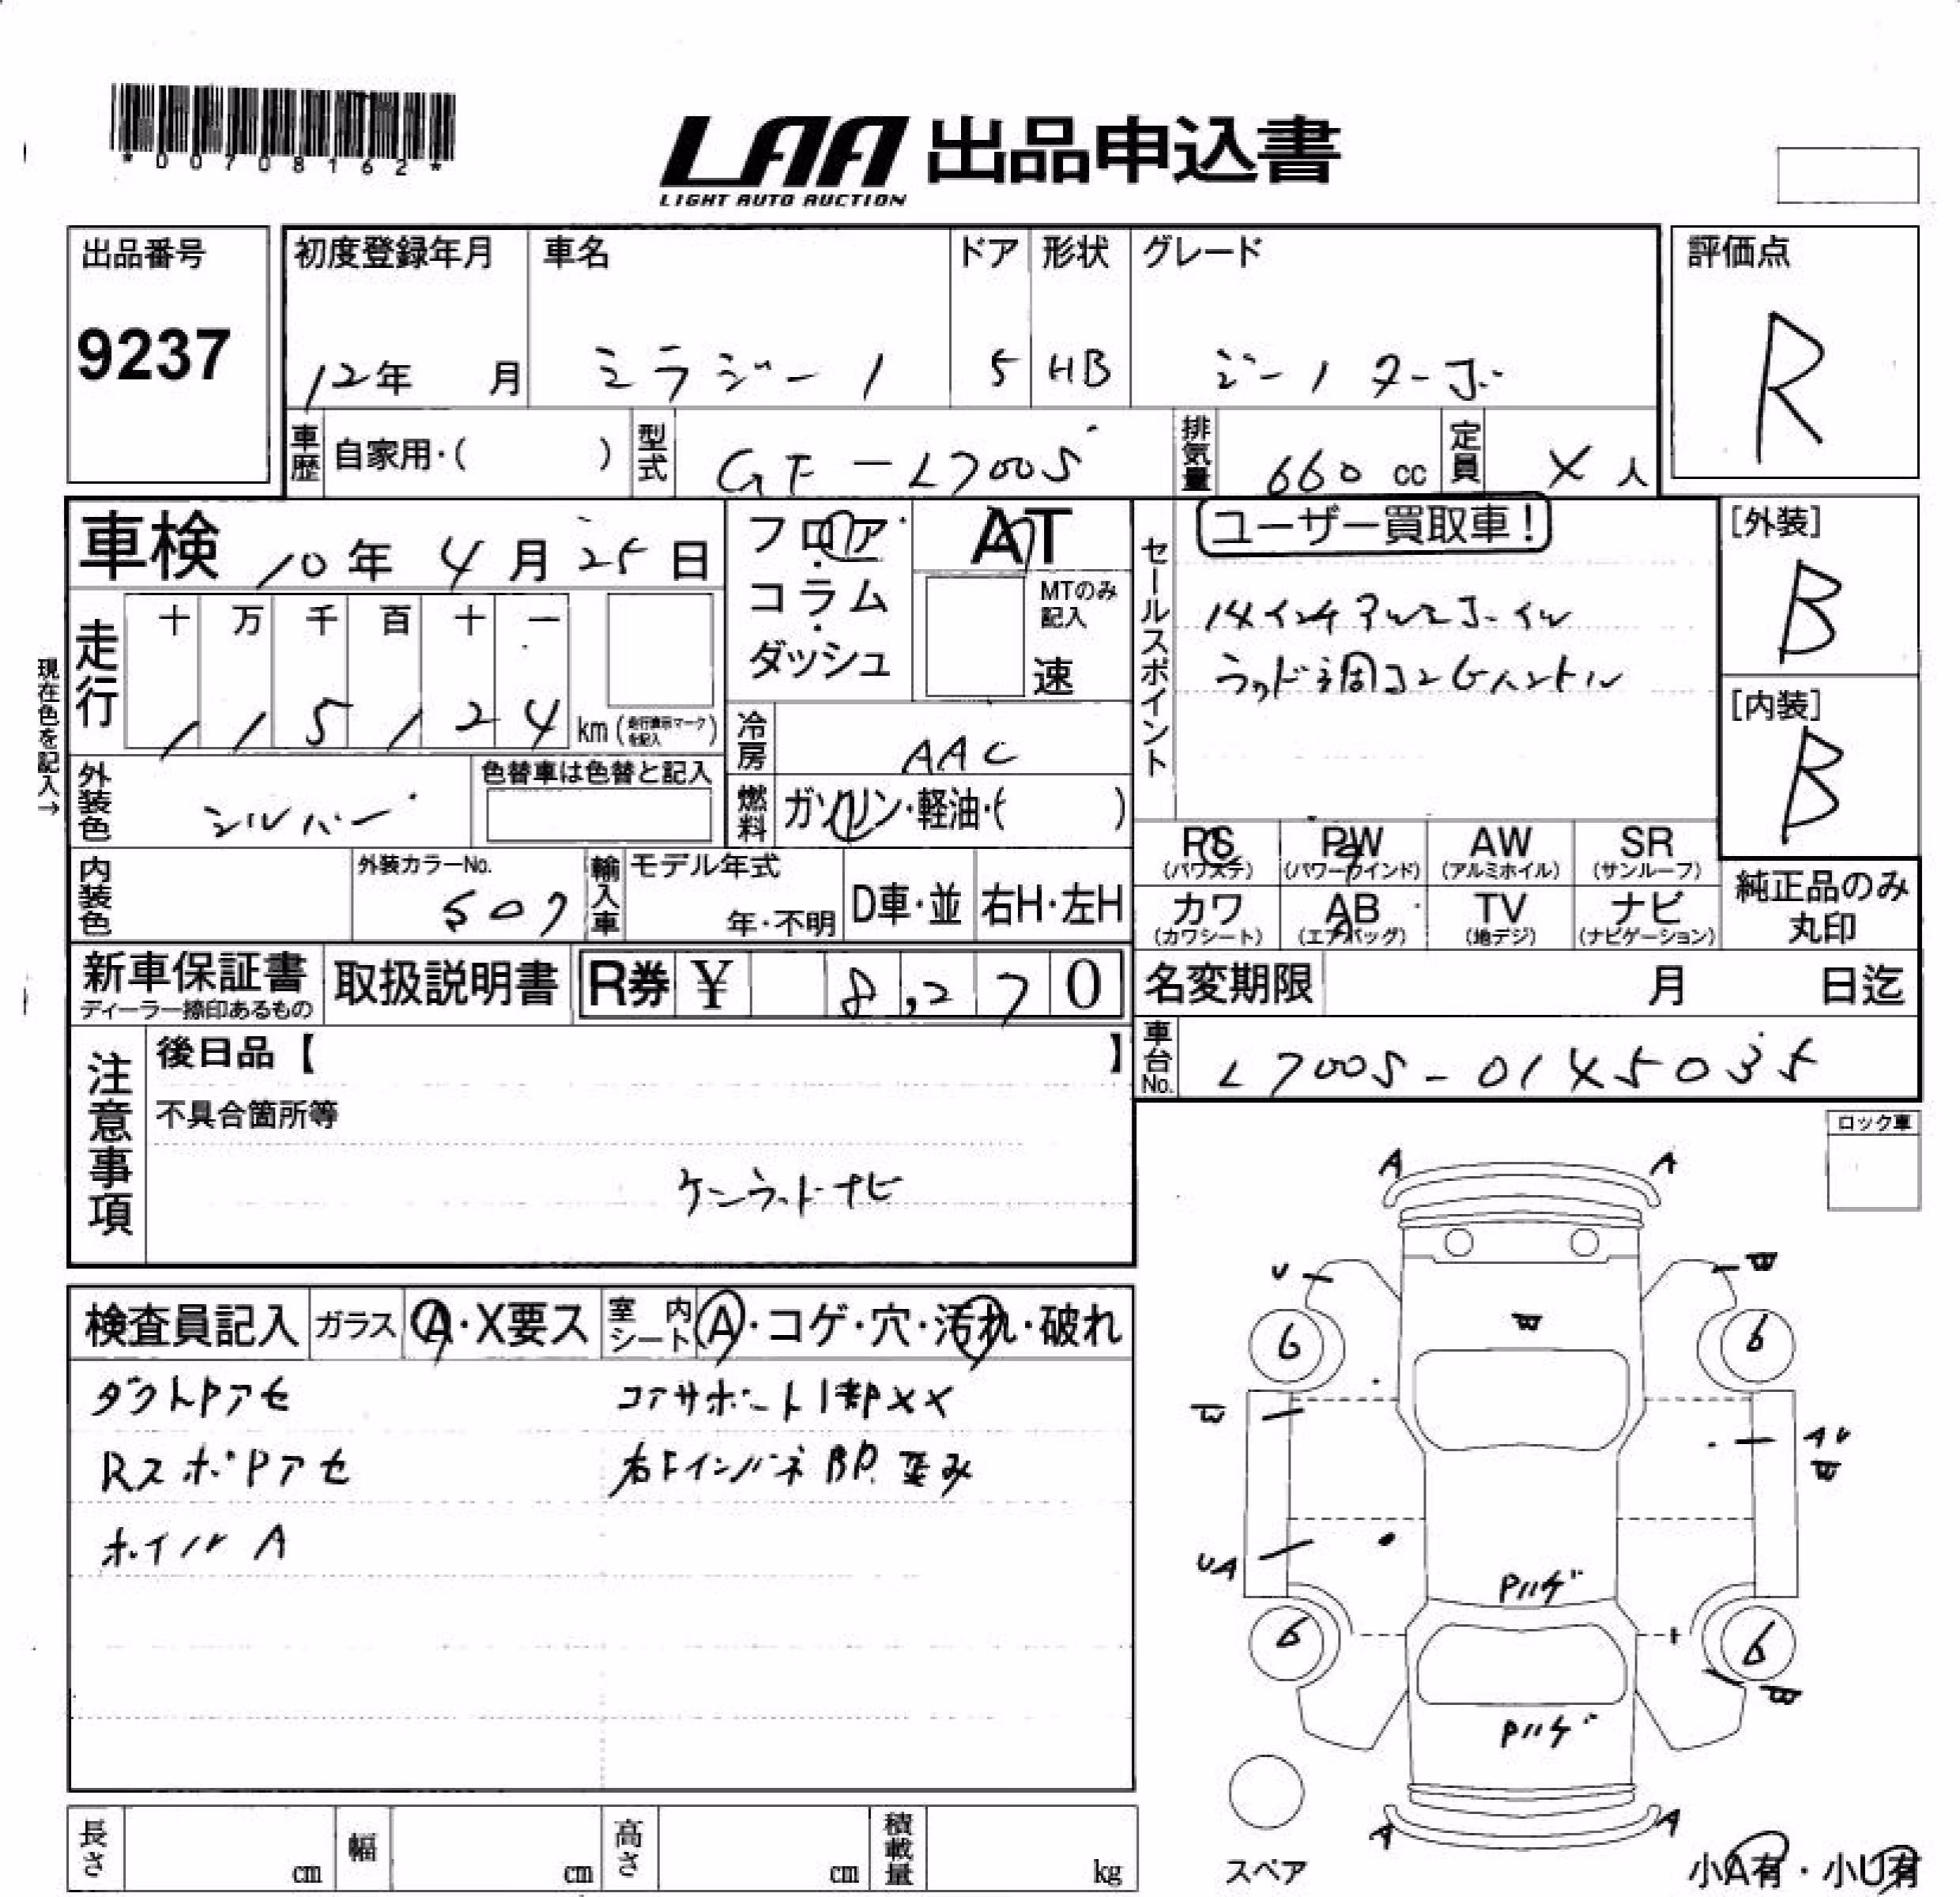 *00708162*
LAA 出品申込書
LIGHT AUTO AUCTION
出品番号 初度登録年月 車名 ドア 形状 グレード 評価点
9237 12年 月 ミラジーノ 5 HB ジーノターボ R
車歴 自家用・( ) 型式 GF-L700S 排気量 660 cc 定員 4 人
車検 10年 4月 25日 フロア・コラム・ダッシュ AT セールスポイント ユーザー買取車! [外装]
B
MTのみ記入 速
14インチアルミホイル
ウッド調コンビハンドル
現在色を記入→
走行 十 万 千 百 十 一
1 1 5 1 2 4 km (走行表示マークを記入)
[内装]
B
冷房 AAC
外装色 シルバー 色替車は色替と記入 燃料 ガソリン・軽油・( )
PS (パワステ) PW (パワーウインド) AW (アルミホイル) SR (サンルーフ)
内装色 外装カラーNo. 507 輸入車 モデル年式 年・不明 D車・並 右H・左H
カワ (カワシート) AB (エアバッグ) TV (地デジ) ナビ (ナビゲーション) 純正品のみ丸印
新車保証書 ディーラー捺印あるもの 取扱説明書 R券 ¥ 8,270 名変期限 月 日迄
注意事項 後日品【 】 車台No. L700S-0145035
不具合箇所等
ケンウッドナビ
ロック車
検査員記入 ガラス A・X要ス 室内シート A・コゲ・穴・汚れ・破れ
ダクトPアセ コアサポート1部XX
RスポPアセ 右Fインパネ BP. 歪み
ホイルA
A A
U
6 6
UA
Pハゲ
6 6
Pハゲ
A A
スペア 小A有・小U有
長さ cm 幅 cm 高さ cm 積載量 kg